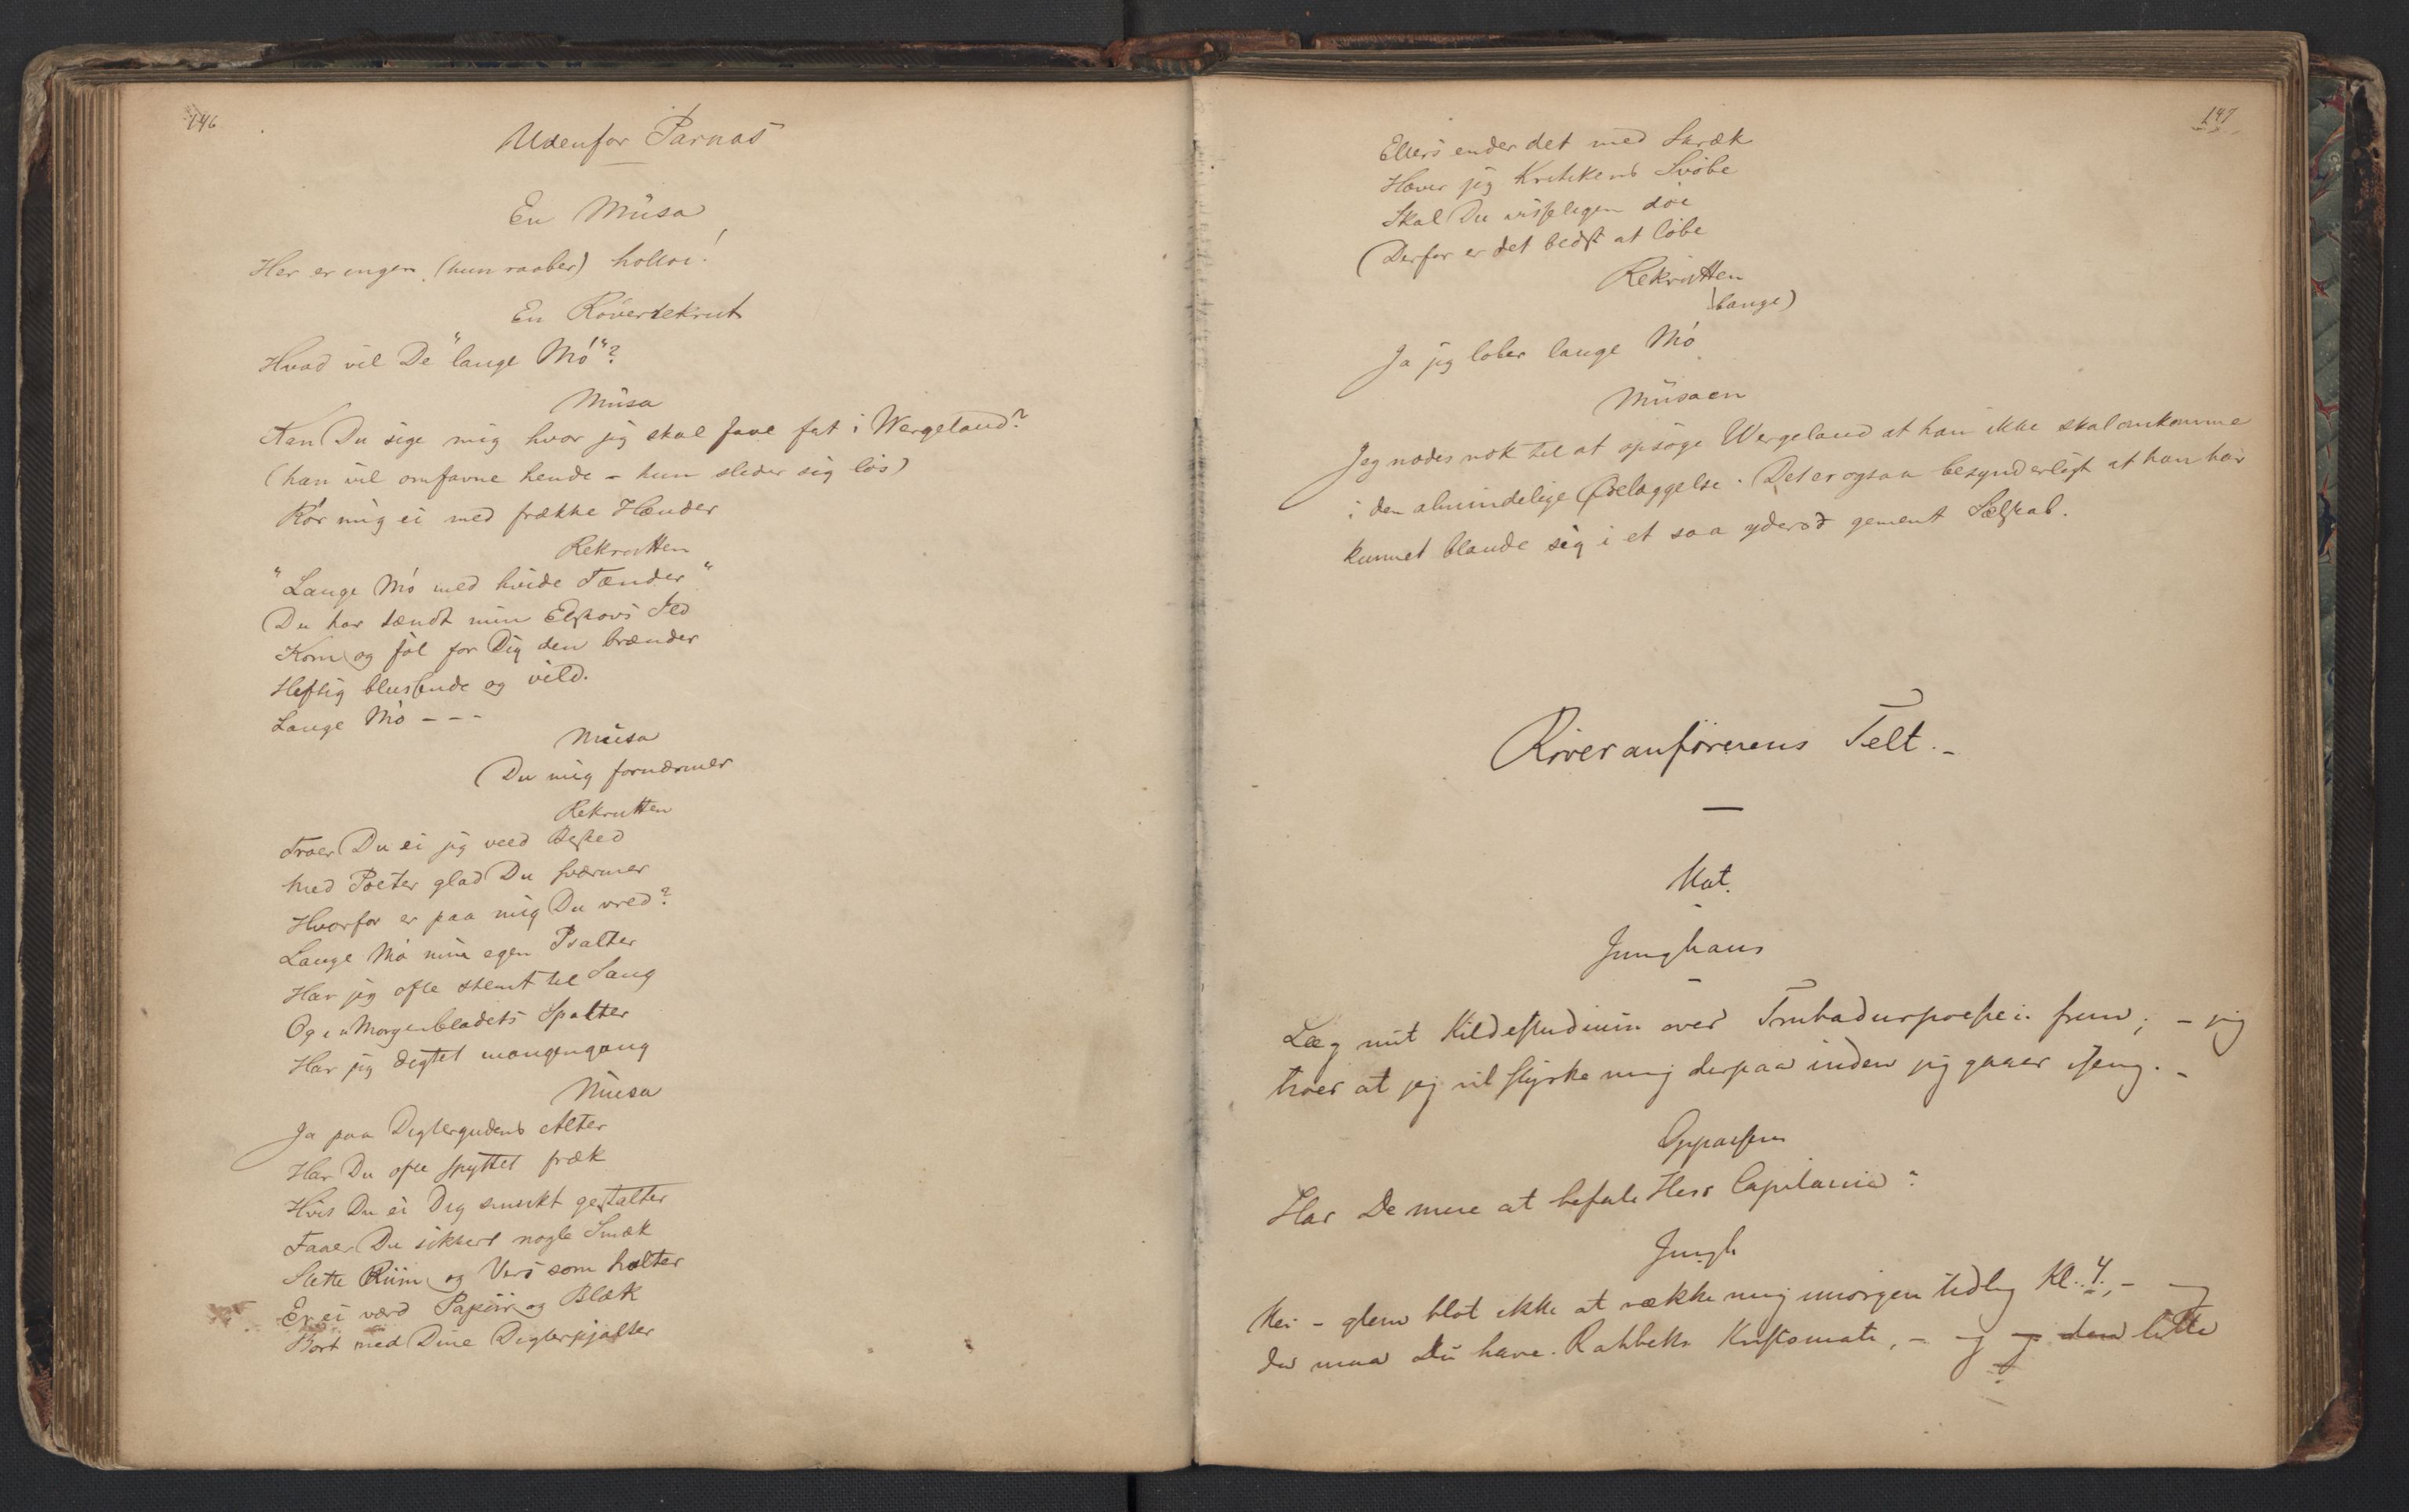 146
Udenfor Parnas
En Müsa
Her er ingen (hun raaber) holloi!
En Röverrekrut
Hvad vil De "lange Mö"?
Müsa
Kan Du sige mig hvor jeg skal faae fat i Wergeland?
(han vil omfavne hende – hun slider sig lös)
Rör mig ei med frække Hænder
Rekrutten
"Lange Mö med hvide Tænder"
Du har tændt min Elskovs Ild
Kom og föl for Dig den brænder
Heftig blussende og vild.
Lange Mö - - -
Müsa
Du mig fornærmer
Rekrutten
Troer Du ei jeg veed Besked
Med Poeter glad Du sværmer
Hvorfor er paa mig Du vred?
Lange Mö min egen Psalter
Har jeg ofte stemt til Sang
Og i Morgenbladets Spalter
Har jeg digtet mangengang
Müsa
Ja paa Digtergudens Alter
Har Du ofte spyttet fræk
Hvis Du ei Dig smukt gestalter
Faaer Du sikkert nogle Smæk
Slette Riim og Vers som halter
Er ei værd Papiir og Blæk
Bort med Dine Digterpjalter
147
Ellers ender det med Skræk
Hæver jeg Kritikens Svöbe
Skal Du visseligen döe
Derfor er det bedst at löbe
Rekrutten
(bange)
Ja jeg löber lange Mö
Müsaen
Jeg nödes nok til at opsöge Wergeland at han ikke skal omkomme
i den almindelige Ödelæggelse. Det er ogsaa besynderligt at han har
kunnet blande sig i et saa yderst gement Selskab.
Röveranförerens Telt. –
Nat.
Junghans
Læg mit Kildestudium over Trubadurpoesien frem; – jeg
troer at jeg vil styrke mig derpaa inden jeg gaaer iseng. –
Oppasseren
Har De mere at befale Herr Capitaine?
Jungh
Nei – glem blot ikke at vække mig imorgen tidlig Kl. 4, –
da maa Du have Rahbeks – og og den lille